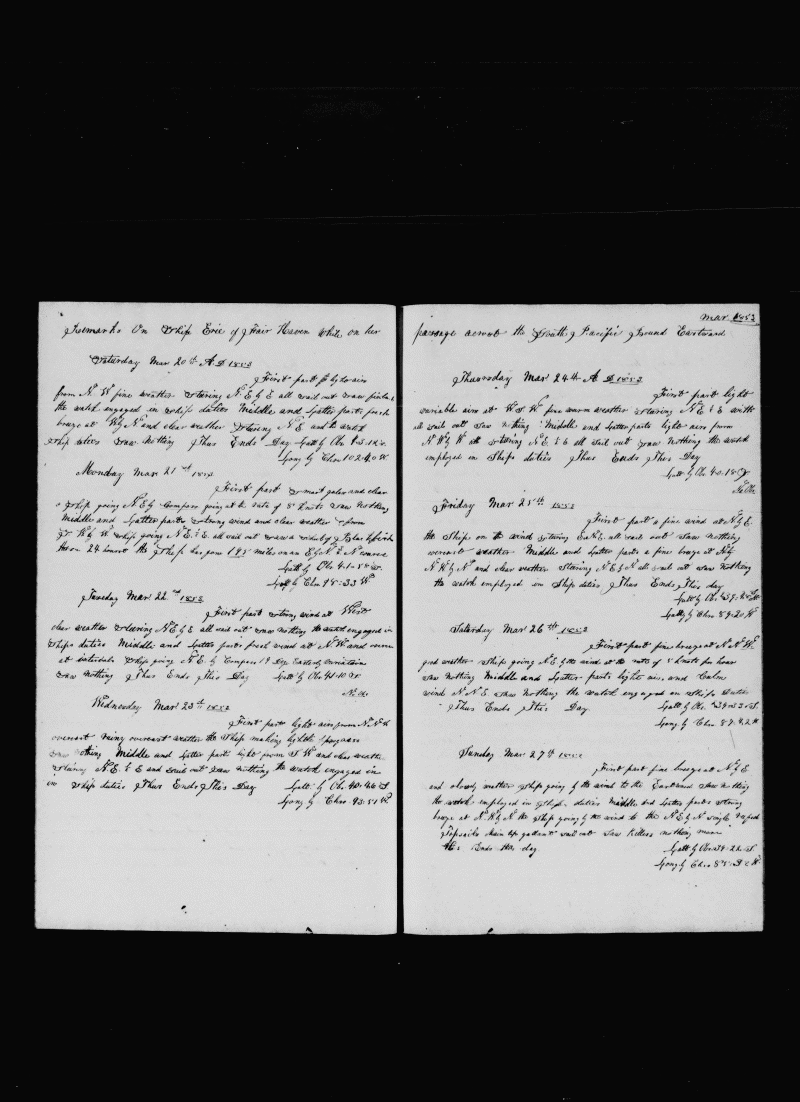 Remarks On Ship Erie of Fair Haven While on her
Saturday Mar 20th A D 1853
First part light airs
from N. W fine weather Steering N E & E all sail out saw
the watch engaged in Ship duties Middle and Latter parts fresh
breeze at W by N and clear weather Steering N E and the watch
Ship duties saw nothing Thus Ends Day Latt by Obs
Long by Chro 102.40 W
Monday Mar 21st 1853
First part smart gales and clear
Ship going N E by Compass going at the rate of 8 knots saw nothing
Middle and Latter parts Strong wind and clear weather from
W by N Ship going N. E. & E. all sail out saw a
hours 24 hours the Ship has gone 195 miles on an E by N course
Latt by Obs 41-58
Long by Chro 98:33 W
Tuesday Mar 22nd 1853
First part strong wind at West
clear weather Steering N E by E all sail out saw nothing the watch engaged in
Ships duties Middle and Latter parts fresh wind at N W and
at intervals Ship going N. E. by Compass 19 Deg Easterly variation
saw nothing Thus Ends This Day Latt by Obs 41-10
No Obs
Wednesday Mar 23d 1853
First part light airs from N. N.
overcast weather the Ship making light progress
saw nothing Middle and Latter part light from S W and clear weather
Steering N. E. & E and sail out saw nothing the watch engaged in
in Ship duties Thus Ends This Day Latt by Obs 40:46 S
Long by Chro 93:51 W
Mar 1853
passage across the South Pacific Bound Eastward
Thursday Mar 24th A D 1853
First part light
variable airs at W S W fine warm weather Steering N E & E with
all sail out saw nothing Middle and Latter parts light airs from
N W by W Steering N. E. & E all sail out saw nothing the watch
employed in Ships duties Thus Ends This Day
Latt by Obs 40:18
No Obs
Friday Mar 25th 1853
First part a fine wind at N by E
the Ship on the wind Steering all sail out saw nothing
overcast weather Middle and Latter parts a fine breeze at
N. W by N and clear weather Steering N E by N all sail out saw nothing
the watch employed in Ship duties Thus Ends This day
Latt by Obs 39:28
Long by Chro 89:20 W
Saturday Mar 26th 1853
First part fine breeze at N. N W.
good weather Ship going N. E. by the wind at the rate of 5 knots per hour
saw nothing Middle and Latter parts light airs, and Calm
wind N N E saw nothing the watch engaged on Ships Duties
Thus Ends This Day Latt by Obs. 39:53 S.
Long by Chro 89.42 W
Sunday Mar 27th 1853
First part fine breeze at N by E
and cloudy weather Ship going by the wind to the Eastward saw nothing
the watch employed in Ship duties Middle and Latter parts strong
breeze at N. W by N the ship going by the wind to the N E by N single reefed
Topsails Main top gallant sail out Saw Killers nothing more
Ends this day. Latt by Obs 39:22 S.
Long by Chro W